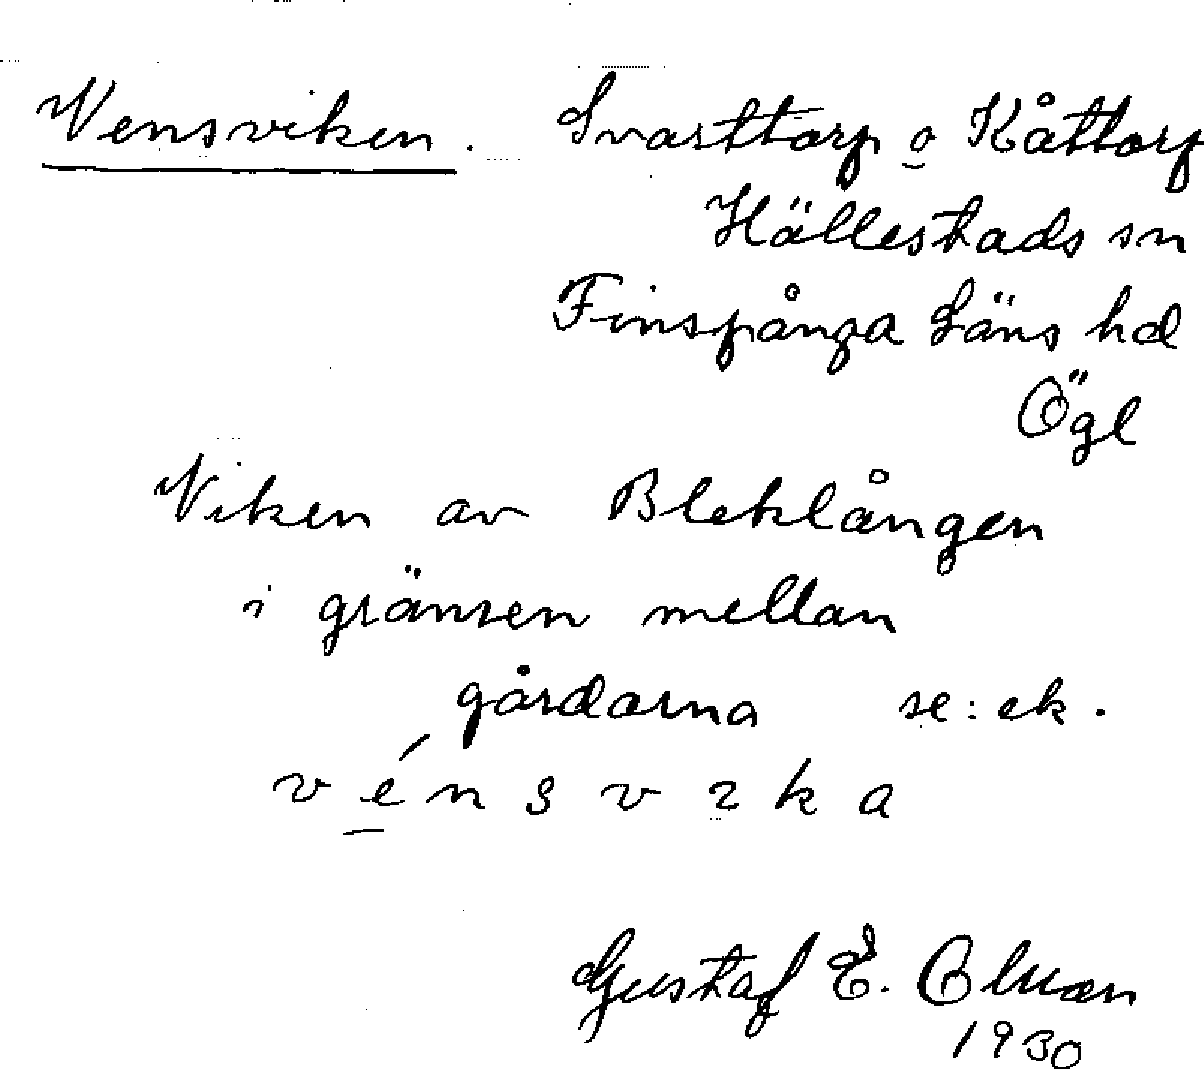 Vensviken. Svarttorp o Kåttorp
Hällestads sn
Finspånga Läns hd
Ögl
Viken av Bleklången
i gränsen mellan
gårdarna se: ek.
vénsvika
Gustaf E.
1930